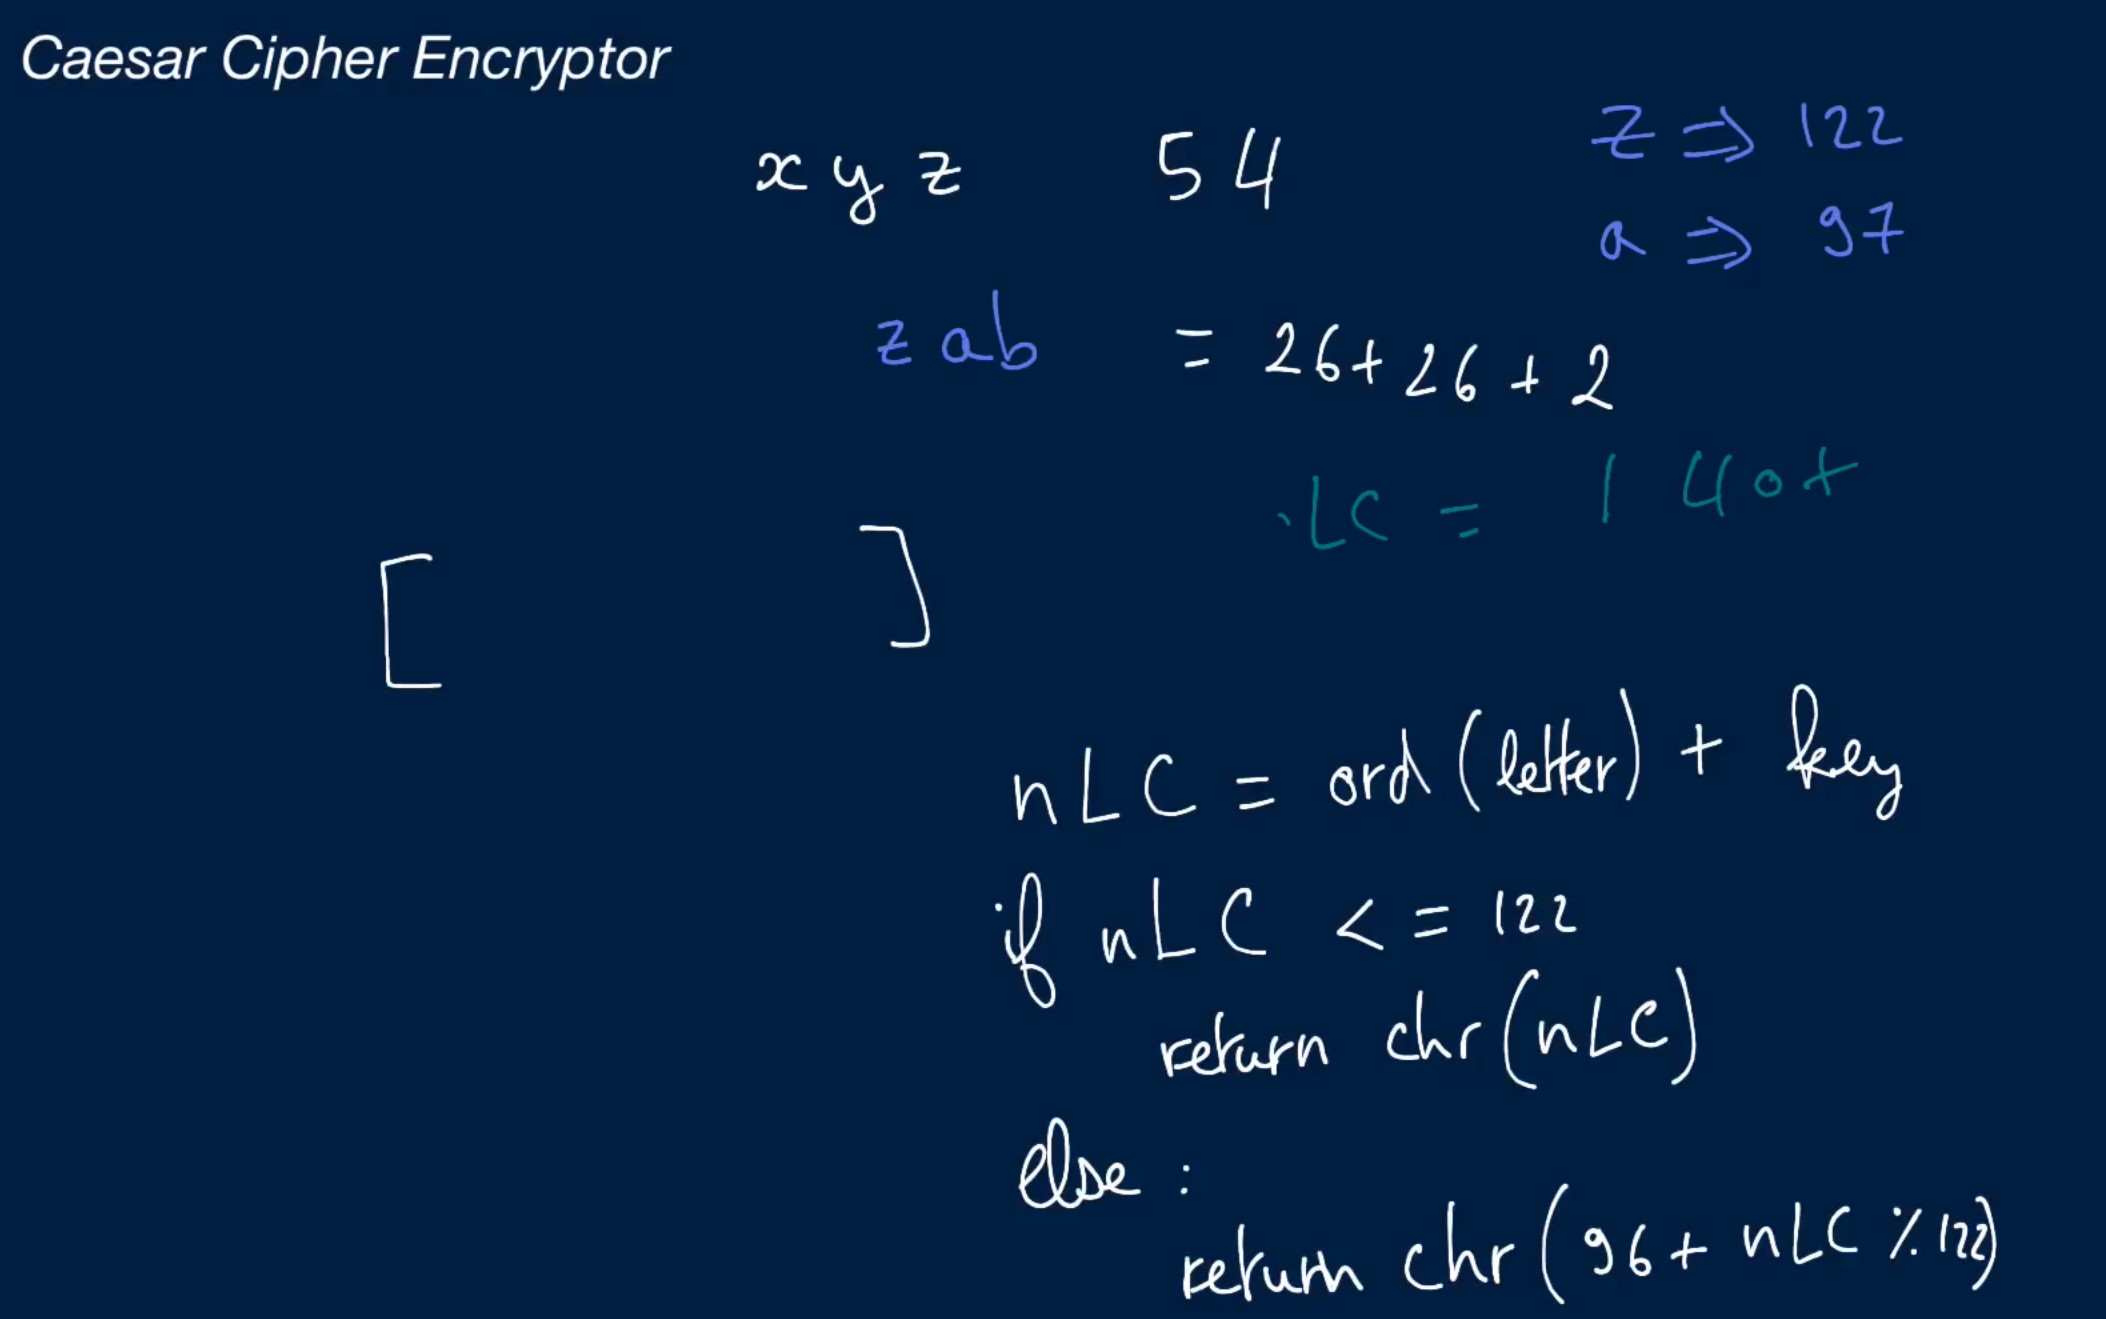 Caesar Cipher Encryptor
x y z 54
z => 122
a => 97
z a b = 26 + 26 + 2
LC = 140+
[ ]
nLC = ord (letter) + key
if nLC <= 122
return chr (nLC)
else :
return chr ( 96 + nLC % 122)